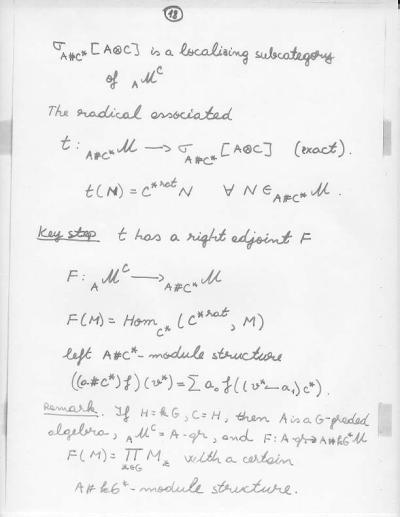 18
σ_{A#C*}[A⊗C] is a localising subcategory
of _A M^C
The radical associated
t : _{A#C*}M → σ_{A#C*}[A⊗C] (exact).
t(N) = C*^{rat} N ∀ N ∈ _{A#C*}M.
Key step t has a right adjoint F
F : _A M^C → _{A#C*}M
F(M) = Hom_{C*}(C*^{rat}, M)
left A#C*-module structure
((a#c*)f)(v*) = Σ a_0 f((v*↼a_1)c*).
Remark. If H = kG, C = H, then A is a G-graded
algebra, _A M^C = A-gr, and F: A-gr→_{A#kG*}M
F(M) = ∏_{x∈G} M_x with a certain
A#kG*-module structure.